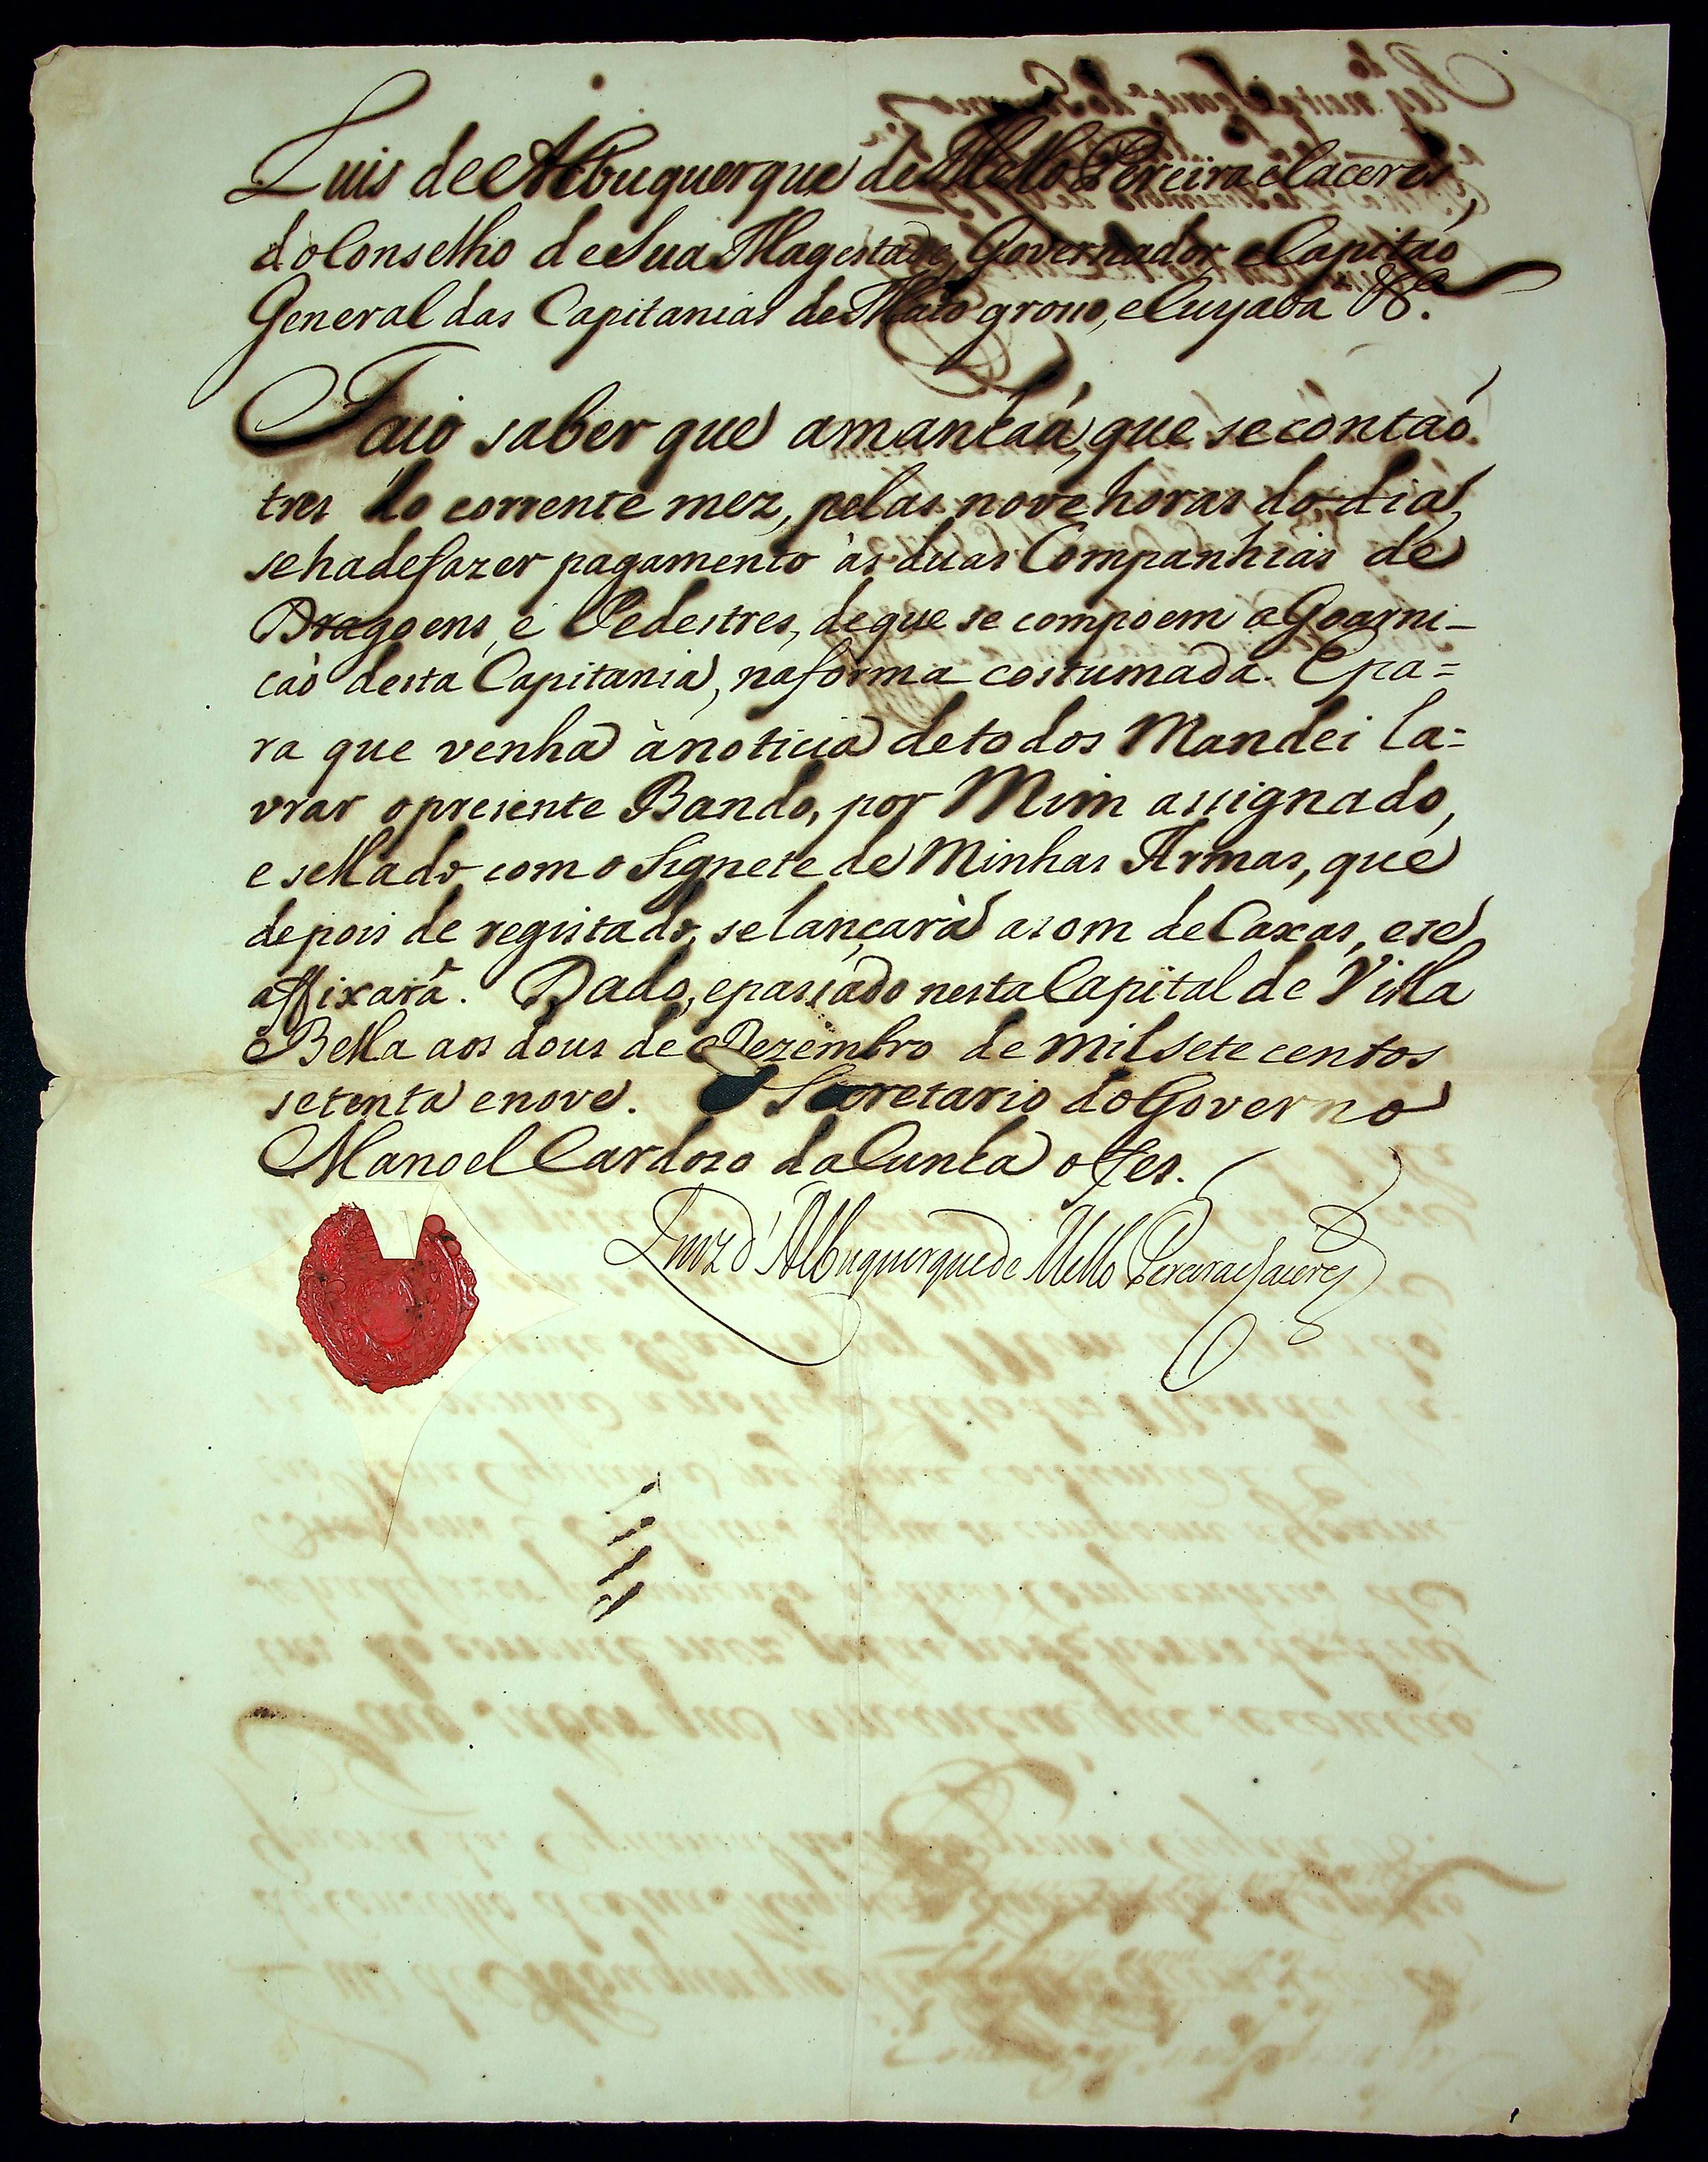 Luis de Albuquerque de Mello Pereira e Caceres
do Conselho de Sua Magestade, Governador, e Capitaõ
General das Capitanias de Mato grosso, e Cuyaba &c.ª
Faço saber que amanhaã, que se contaõ
tres do corrente mez, pelas nove horas do dia,
se ha de fazer pagamento às duas Companhias de
Dragoens, e Pedestres, de que se compoem a Goarni-
caõ desta Capitania, na forma costumada. E pa=
ra que venha à noticia de todos Mandei la=
vrar o presente Bando, por Mim assignado,
e sellado com o Signete de Minhas Armas, que
depois de registado, se lançarà a som de Caxas, e se
affixarà. Dado, e passado nesta Capital de Villa
Bella aos dous de Dezembro de mil sete centos
setenta e nove. O Secretario do Governo
Manoel Cardozo da Cunha o fes.
Luiz d'Albuquerque de Mello Pereira e Caceres